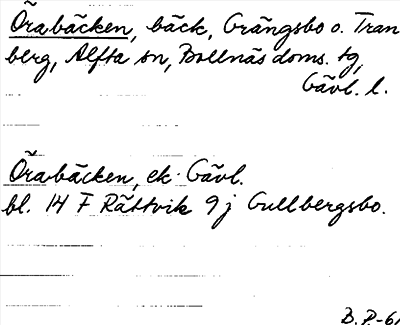 Örabäcken, bäck, Grängsbo o. Tran
berg, Alfta sn, Bollnäs doms. tg,
Gävl. l.
Örabäcken, ek. Gävl.
bl. 14 F Rättvik 9 j Gullbergsbo.
B. P-61